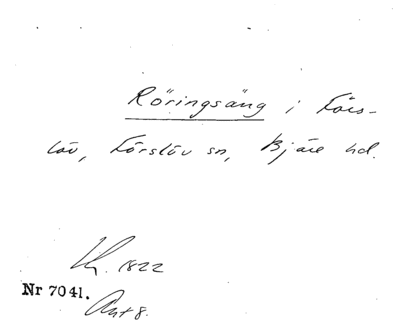 Röringsäng i Förs-
löv, Förslöv sn, Bjäre hd.
Kr. 1822
Nr 7041.
Akt 8.